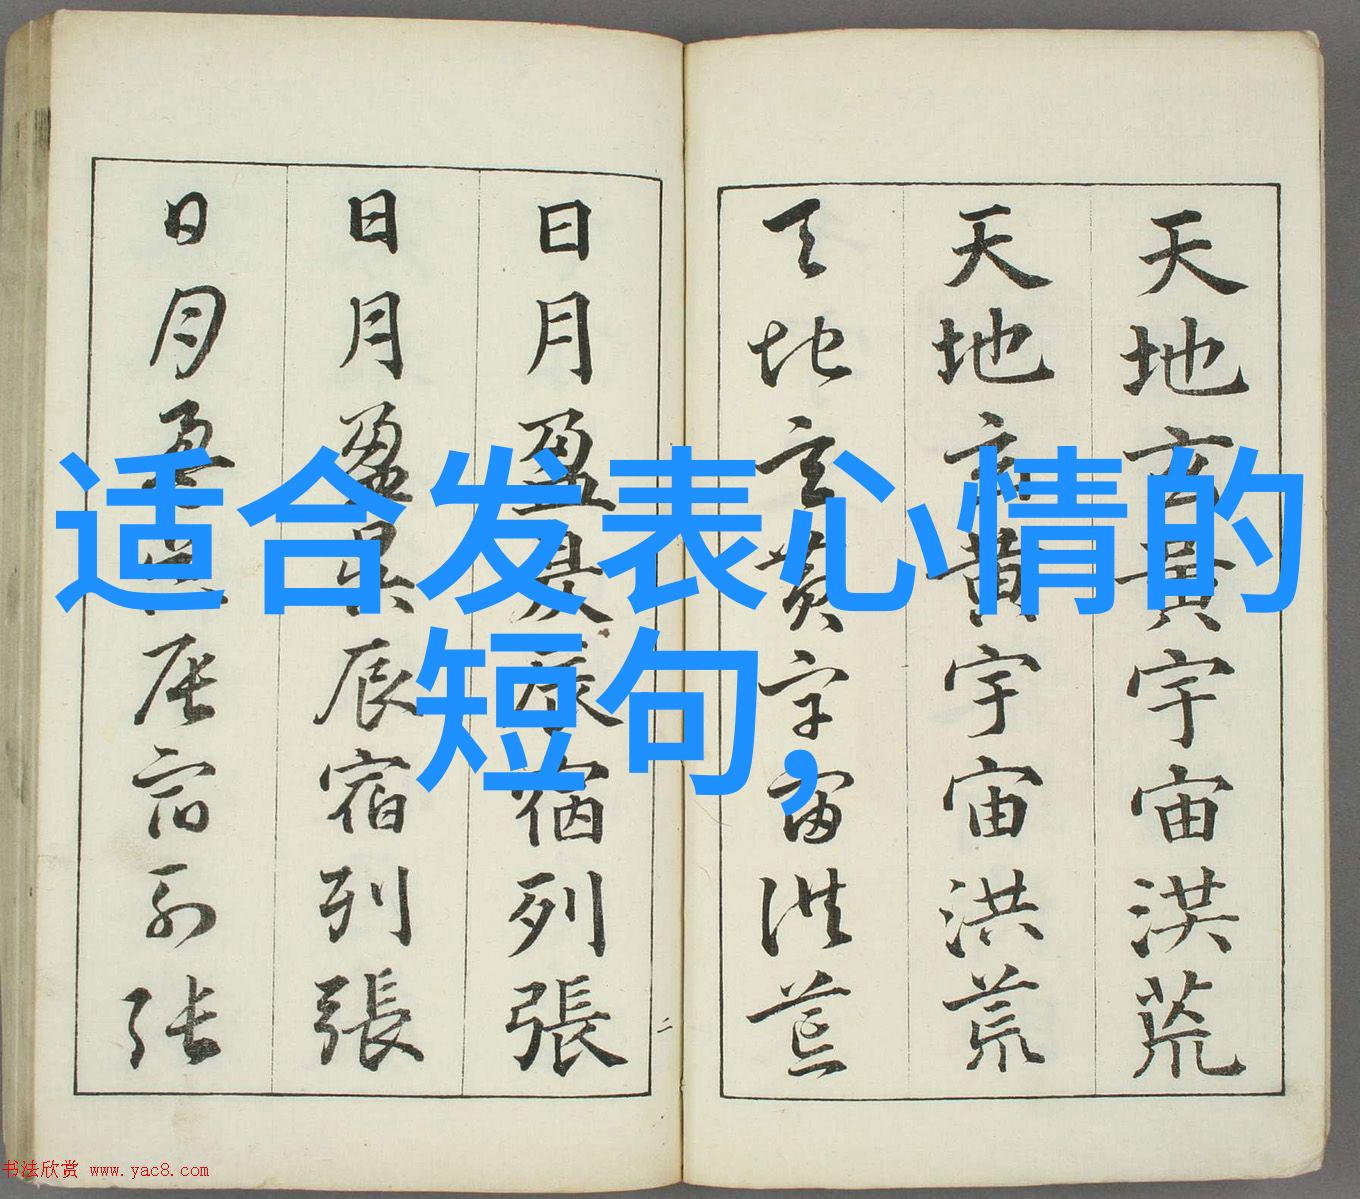 天地玄黄宇宙洪荒
天地玄黄宇宙洪荒
天地玄黄宇宙洪荒
日月盈昃辰宿列張
日月盈昃辰宿列張
日月盈昃辰宿列張
二
适合发表心情的
短句,
书法欣赏 www.yac8.com